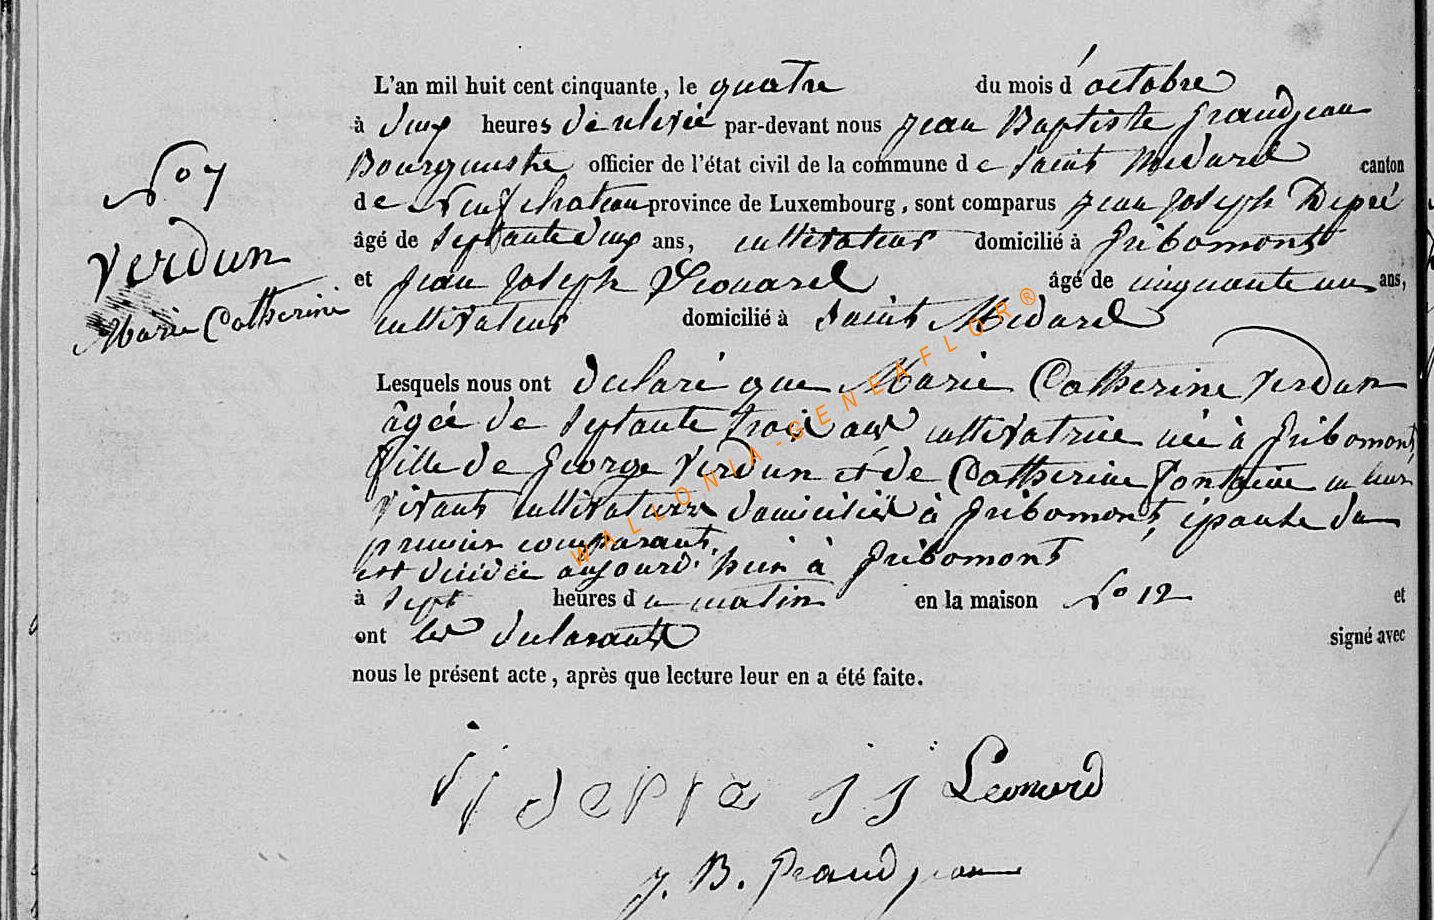 L'an mil huit cent cinquante, le quatre du mois d'octobre
à deux heures de relevée par-devant nous Jean Baptiste Grandjean
Bourgmestre officier de l'état civil de la commune de Saint Médard canton
de Neufchateau province de Luxembourg, sont comparus Jean Joseph Depré
âgé de septante deux ans, cultivateur domicilié à Gribomont
et Jean Joseph Léonard âgé de cinquante un ans,
cultivateur domicilié à Saint Médard
No 7
Verdun
Marie Catherine
Lesquels nous ont declaré que Marie Catherine Verdun
âgée de septante trois ans cultivatrice née à Gribomont,
fille de George Verdun et de Catherine Fontaine en leur
vivants cultivateurs domiciliés à Gribomont, épouse du
premier comparant,
est décédée aujourd'huis à Gribomont
à sept heures du matin en la maison No 12 et
ont les declarants signé avec
nous le présent acte, après que lecture leur en a été faite.
j j depre j j Leonard
J. B. Grandjean
WALLONIA-GENEAFLOR®